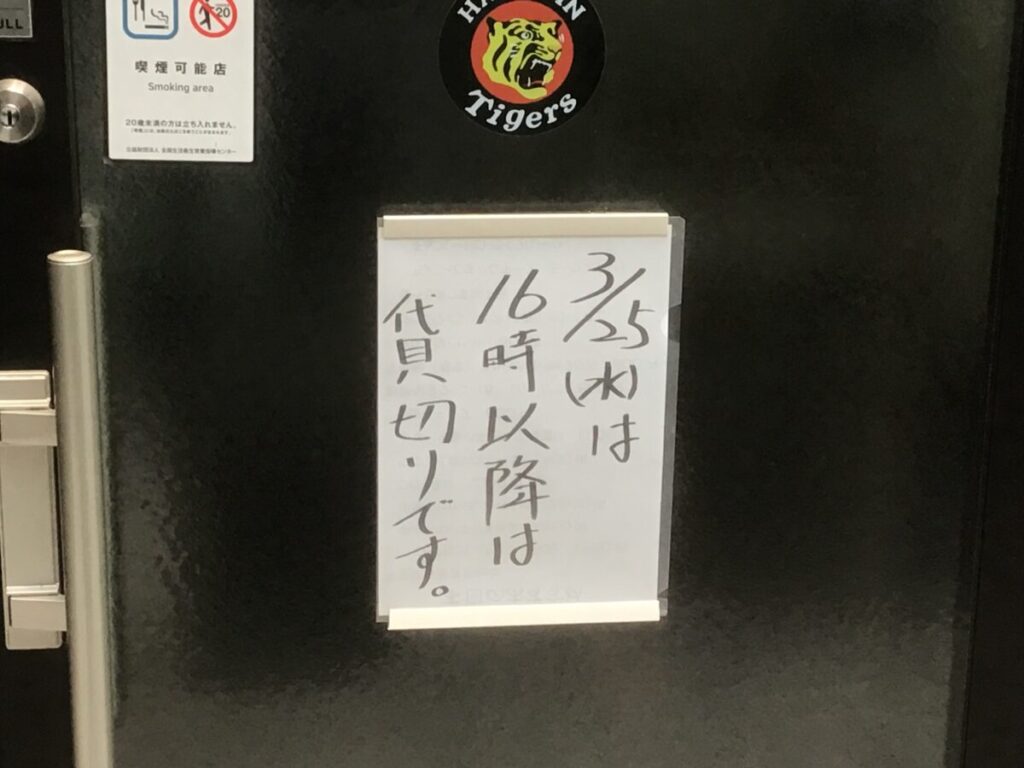 ULL
20
喫煙可能店
Smoking area
20歳未満の方は立ち入れません。
HANSHIN
Tigers
3/25(水)は
16時以降は
貸切りです。